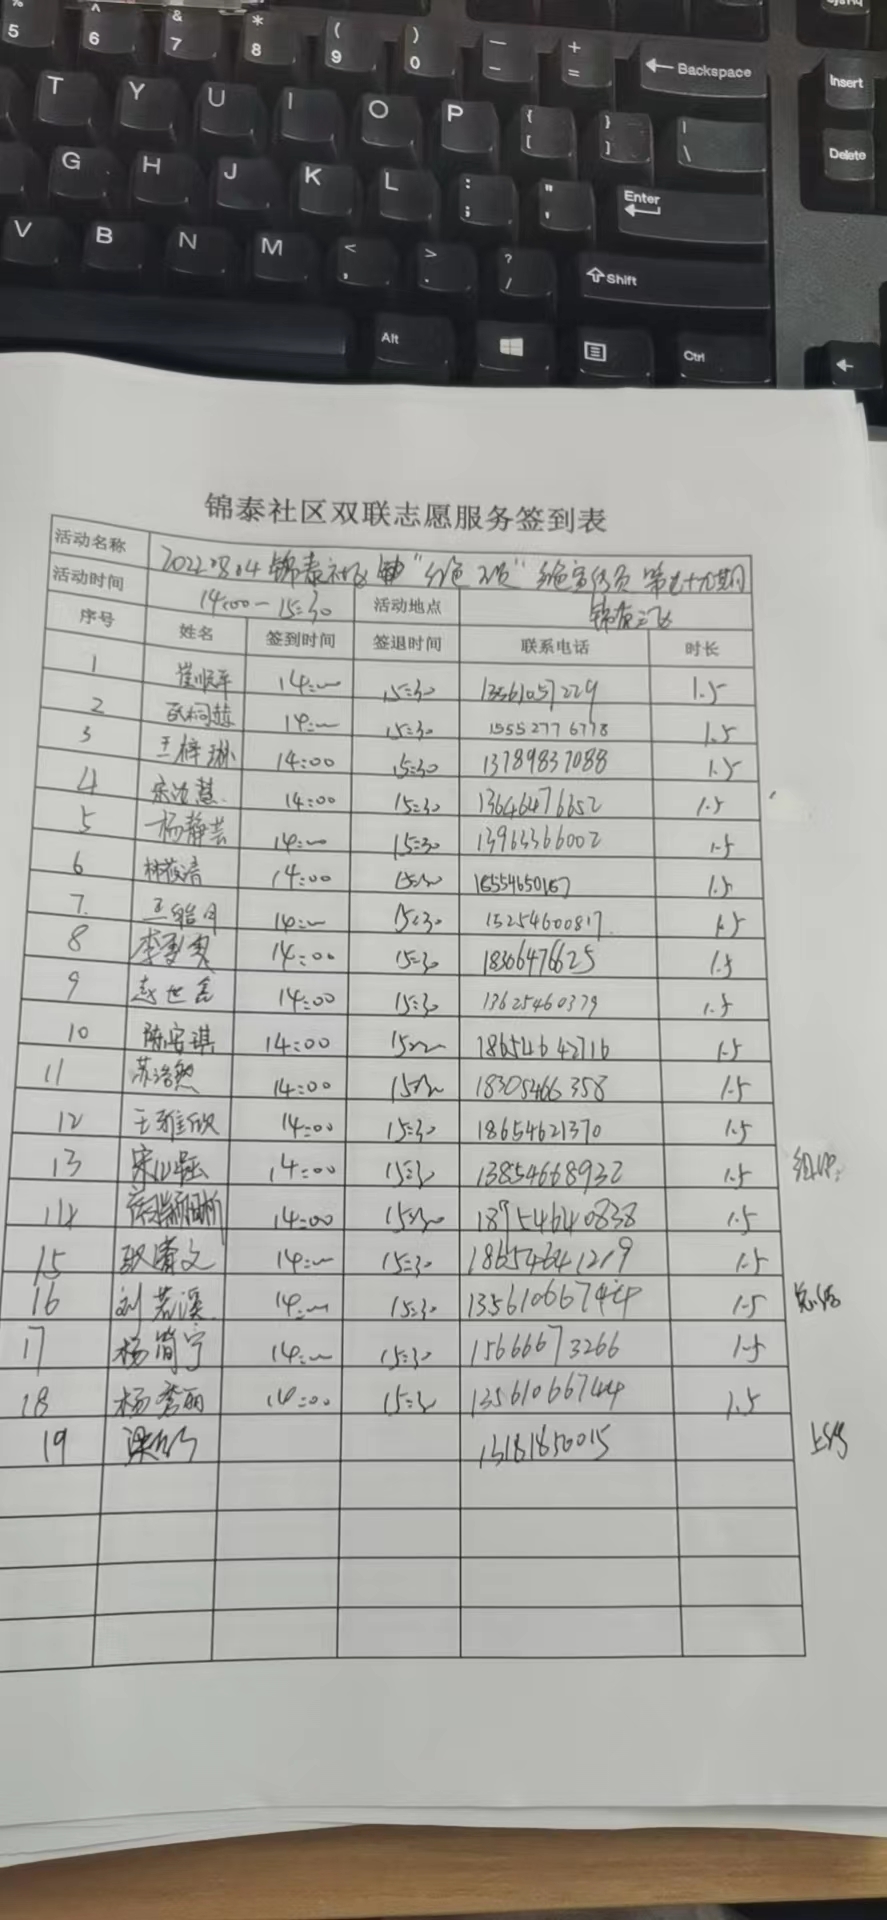 % ^ & * ( ) — +
5 6 7 8 9 0 - = ← Backspace Insert
T Y U I O P { [ } ] | \ Delete
G H J K L : ; " ' Enter
V B N M < , > . ? / ⇧ Shift
Alt Ctrl ←
锦泰社区双联志愿服务签到表
活动名称 2022.08.04 锦泰社区
活动时间 14:00-15:30 活动地点 锦泰
序号 姓名 签到时间 签退时间 联系电话 时长
1 崔顺平 14:00 15:30 13561057229 1.5
2 14:00 15:30 15552776778 1.5
3 王梓琳 14:00 15:30 13789837088 1.5
4 14:00 15:30 13646476652 1.5
5 杨静芸 14:00 15:30 13963366002 1.5
6 林筱清 14:00 15:30 1.5
7. 14:00 15:30 15254600817. 1.5
8 14:00 15:30 18306476625 1.5
9 赵世鑫 14:00 15:30 13625460379 1.5
10 陈安琪 14:00 15:30 18654642716 1.5
11 苏浩然 14:00 15:30 18305466358 1.5
12 王雅欣 14:00 15:30 18654621370 1.5
13 14:00 15:30 13854668932 1.5
14 14:00 15:30 18754640838 1.5
15 14:00 15:30 18654641219 1.5
16 刘若溪 14:00 15:30 13561066744 1.5 总结
17 杨简宁 14:00 15:30 15666673266 1.5
18 杨秀丽 14:00 15:30 13561066744 1.5
19 13181850015 上传